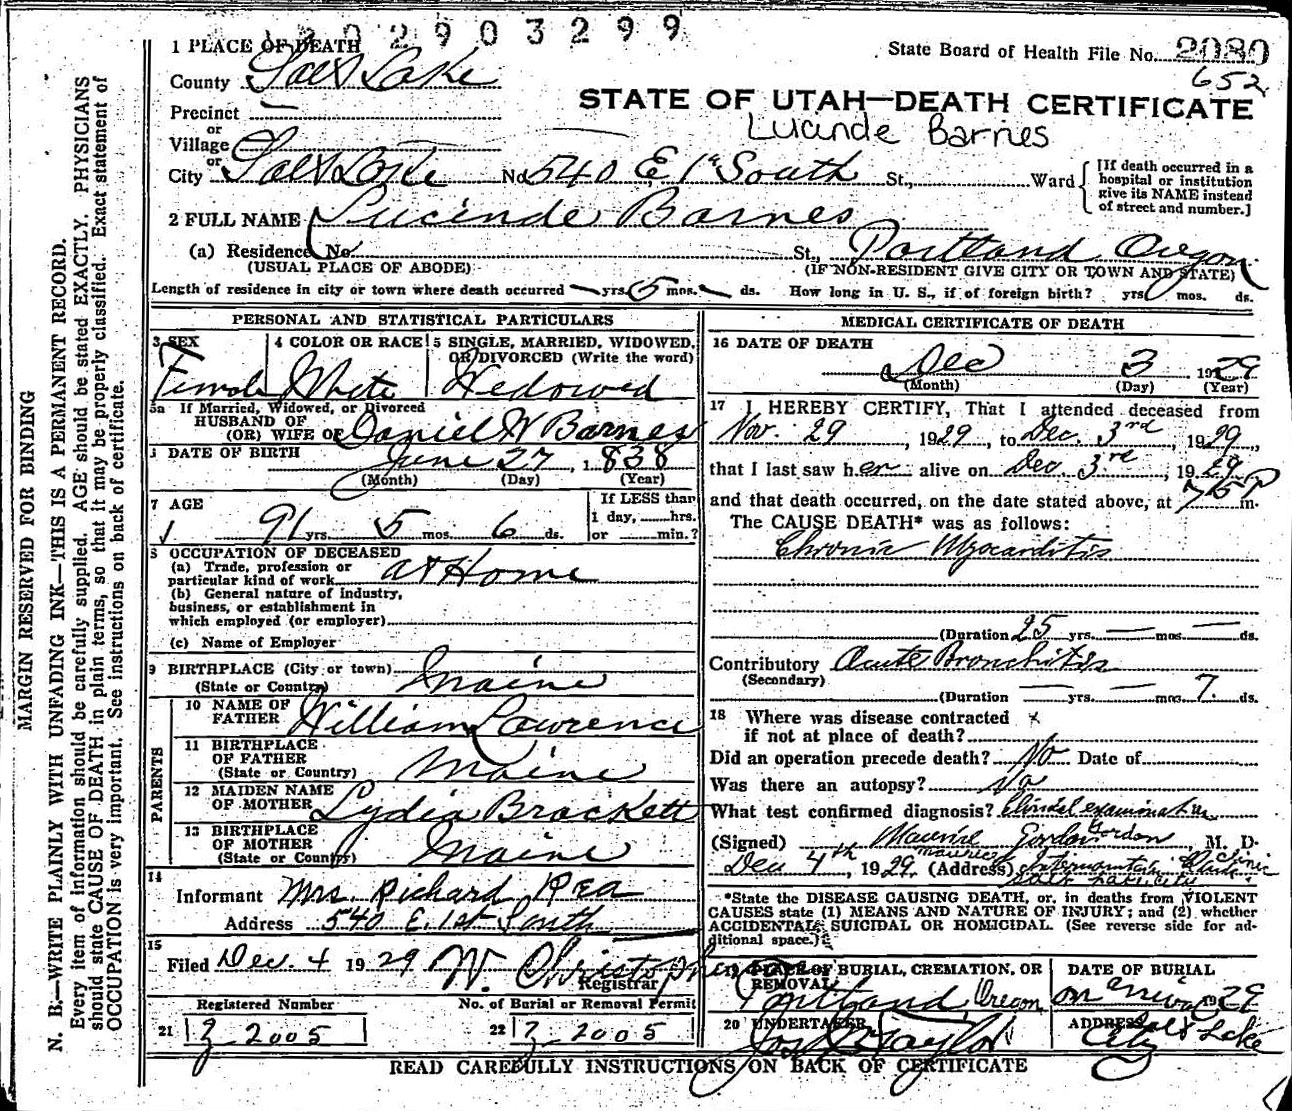 2903299
State Board of Health File No. 2080
652
1 PLACE OF DEATH
County Salt Lake
STATE OF UTAH—DEATH CERTIFICATE
Precinct —
Lucinde Barnes
or
Village
or
City Salt Lake No. 540 E 1st South St., Ward
[If death occurred in a hospital or institution give its NAME instead of street and number.]
2 FULL NAME Lucinde Barnes
(a) Residence No. St., Portland Oregon
(USUAL PLACE OF ABODE) (IF NON-RESIDENT GIVE CITY OR TOWN AND STATE)
Length of residence in city or town where death occurred — yrs. 5 mos. — ds. How long in U. S., if of foreign birth? yrs. mos. ds.
PERSONAL AND STATISTICAL PARTICULARS
3 SEX
Female
4 COLOR OR RACE
White
5 SINGLE, MARRIED, WIDOWED,
OR DIVORCED (Write the word)
Wedowed
5a If Married, Widowed, or Divorced
HUSBAND OF
(OR) WIFE OF Daniel W Barnes
DATE OF BIRTH June 27, 1838
(Month) (Day) (Year)
7 AGE
91 yrs. 5 mos. 6 ds.
If LESS than
1 day, hrs.
or min.?
8 OCCUPATION OF DECEASED
(a) Trade, profession or
particular kind of work at Home
(b) General nature of industry,
business, or establishment in
which employed (or employer)
(c) Name of Employer
9 BIRTHPLACE (City or town)
(State or Country) Maine
PARENTS
10 NAME OF
FATHER William Lawrence
11 BIRTHPLACE
OF FATHER
(State or Country) Maine
12 MAIDEN NAME
OF MOTHER Lydia Brackett
13 BIRTHPLACE
OF MOTHER
(State or Country) Maine
14
Informant Mrs. Richard Rea
Address 540 E. 1st South
15
Filed Dec. 4 1929 W. Christopher
Registrar
Registered Number No. of Burial or Removal Permit
21 Z 2005 22 Z 2005
MEDICAL CERTIFICATE OF DEATH
16 DATE OF DEATH
Dec 3 1929
(Month) (Day) (Year)
17 I HEREBY CERTIFY, That I attended deceased from
Nov. 29, 1929, to Dec. 3rd, 1929,
that I last saw her alive on Dec. 3rd, 1929
and that death occurred, on the date stated above, at 7 15 P m.
The CAUSE DEATH* was as follows:
Chronic Myocarditis
(Duration 25 yrs. — mos. — ds.
Contributory Acute Bronchitis
(Secondary)
(Duration — yrs. — mos. 7 ds.
18 Where was disease contracted
if not at place of death? x
Did an operation precede death? No Date of
Was there an autopsy? No
What test confirmed diagnosis? Clinical examination
(Signed) Maurice Gordon Gordon, M. D.
Maurice
Dec 4th, 1929 (Address) Intermountain Clinic
Salt Lake City
*State the DISEASE CAUSING DEATH, or, in deaths from VIOLENT
CAUSES state (1) MEANS AND NATURE OF INJURY; and (2) whether
ACCIDENTAL, SUICIDAL OR HOMICIDAL. (See reverse side for ad-
ditional space.)
19 PLACE OF BURIAL, CREMATION, OR
REMOVAL
Portland, Oregon
DATE OF BURIAL
on arrival 1929
20 UNDERTAKER
Jos Taylor
ADDRESS
Salt Lake
City
READ CAREFULLY INSTRUCTIONS ON BACK OF CERTIFICATE
MARGIN RESERVED FOR BINDING
N. B.—WRITE PLAINLY WITH UNFADING INK—THIS IS A PERMANENT RECORD.
Every item of information should be carefully supplied. AGE should be stated EXACTLY. PHYSICIANS
should state CAUSE OF DEATH in plain terms, so that it may be properly classified. Exact statement of
OCCUPATION is very important. See instructions on back of certificate.